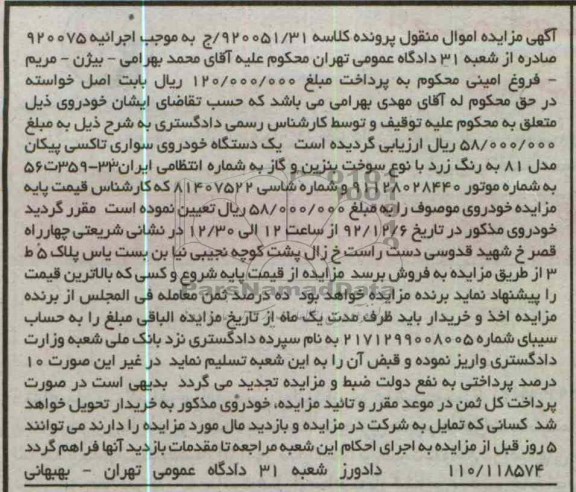 آگهی مزایده اموال منقول پرونده کلاسه ۹۲۰۰۵۱/۳۱/ج به موجب اجرائیه ۹۲۰۰۷۵
صادره از شعبه ۳۱ دادگاه عمومی تهران محکوم علیه آقای محمد بهرامی - بیژن - مریم
- فروغ امینی محکوم به پرداخت مبلغ ۱۲۰/۰۰۰/۰۰۰ ریال بابت اصل خواسته
در حق محکوم له آقای مهدی بهرامی می باشد که حسب تقاضای ایشان خودروی ذیل
متعلق به محکوم علیه توقیف و توسط کارشناس رسمی دادگستری به شرح ذیل به مبلغ
۵۸/۰۰۰/۰۰۰ ریال ارزیابی گردیده است یک دستگاه خودروی سواری تاکسی پیکان
مدل ۸۱ به رنگ زرد با نوع سوخت بنزین و گاز به شماره انتظامی ایران۳۳-۳۵۹ت۵۶
به شماره موتور ۱۱۱۲۸۰۲۸۴۴۰ و شماره شاسی ۸۱۴۰۷۵۲۲ که کارشناس قیمت پایه
مزایده خودروی موصوف را به مبلغ ۵۸/۰۰۰/۰۰۰ ریال تعیین نموده است مقرر گردید
خودروی مذکور در تاریخ ۹۲/۱۲/۶ از ساعت ۱۲ الی ۱۲/۳۰ در نشانی شریعتی چهارراه
قصر خ شهید قدوسی دست راست خ زال پشت کوچه نجیبی نیا بن بست یاس پلاک ۵ ط
۳ از طریق مزایده به فروش برسد مزایده از قیمت پایه شروع و کسی که بالاترین قیمت
را پیشنهاد نماید برنده مزایده خواهد بود ده درصد ثمن معامله فی المجلس از برنده
مزایده اخذ و خریدار باید ظرف مدت یک ماه از تاریخ مزایده الباقی مبلغ را به حساب
سیبای شماره ۲۱۷۱۲۹۹۰۰۸۰۰۵ به نام سپرده دادگستری نزد بانک ملی شعبه وزارت
دادگستری واریز نموده و قبض آن را به این شعبه تسلیم نماید در غیر این صورت ۱۰
درصد پرداختی به نفع دولت ضبط و مزایده تجدید می گردد بدیهی است در صورت
پرداخت کل ثمن در موعد مقرر و تائید مزایده، خودروی مذکور به خریدار تحویل خواهد
شد کسانی که تمایل به شرکت در مزایده و بازدید مال مورد مزایده را دارند می توانند
۵ روز قبل از مزایده به اجرای احکام این شعبه مراجعه تا مقدمات بازدید آنها فراهم گردد
۱۱۰/۱۱۸۵۷۴ دادورز شعبه ۳۱ دادگاه عمومی تهران - بهبهانی